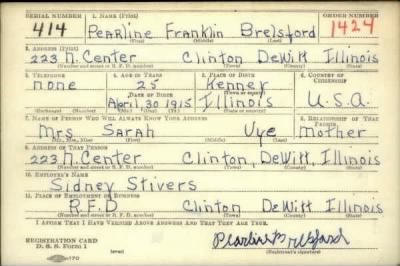 SERIAL NUMBER 1. NAME (Print) ORDER NUMBER
414 Pearline Franklin Brelsford 1424
(First) (Middle) (Last)
2. ADDRESS (Print)
223 N. Center Clinton DeWitt Illinois
(Number and street or R. F. D. number) (Town) (County) (State)
3. TELEPHONE 4. AGE IN YEARS 5. PLACE OF BIRTH 6. COUNTRY OF CITIZENSHIP
none 25 Kenney
DATE OF BIRTH
April 30 1915 Illinois U.S.A.
(Exchange) (Number) (Mo.) (Day) (Yr.) (State or country)
7. NAME OF PERSON WHO WILL ALWAYS KNOW YOUR ADDRESS 8. RELATIONSHIP OF THAT PERSON
Mrs Sarah Uye Mother
(Mr., Mrs., Miss) (First) (Middle) (Last)
9. ADDRESS OF THAT PERSON
223 N. Center Clinton, DeWitt, Illinois
(Number and street or R. F. D. number) (Town) (County) (State)
10. EMPLOYER'S NAME
Sidney Stivers
11. PLACE OF EMPLOYMENT OR BUSINESS
R.F.D Clinton DeWitt Illinois
(Number and street or R. F. D. number) (Town) (County) (State)
I AFFIRM THAT I HAVE VERIFIED ABOVE ANSWERS AND THAT THEY ARE TRUE.
REGISTRATION CARD
D. S. S. Form 1 (over) Pearline Brelsford
(Registrant's signature)